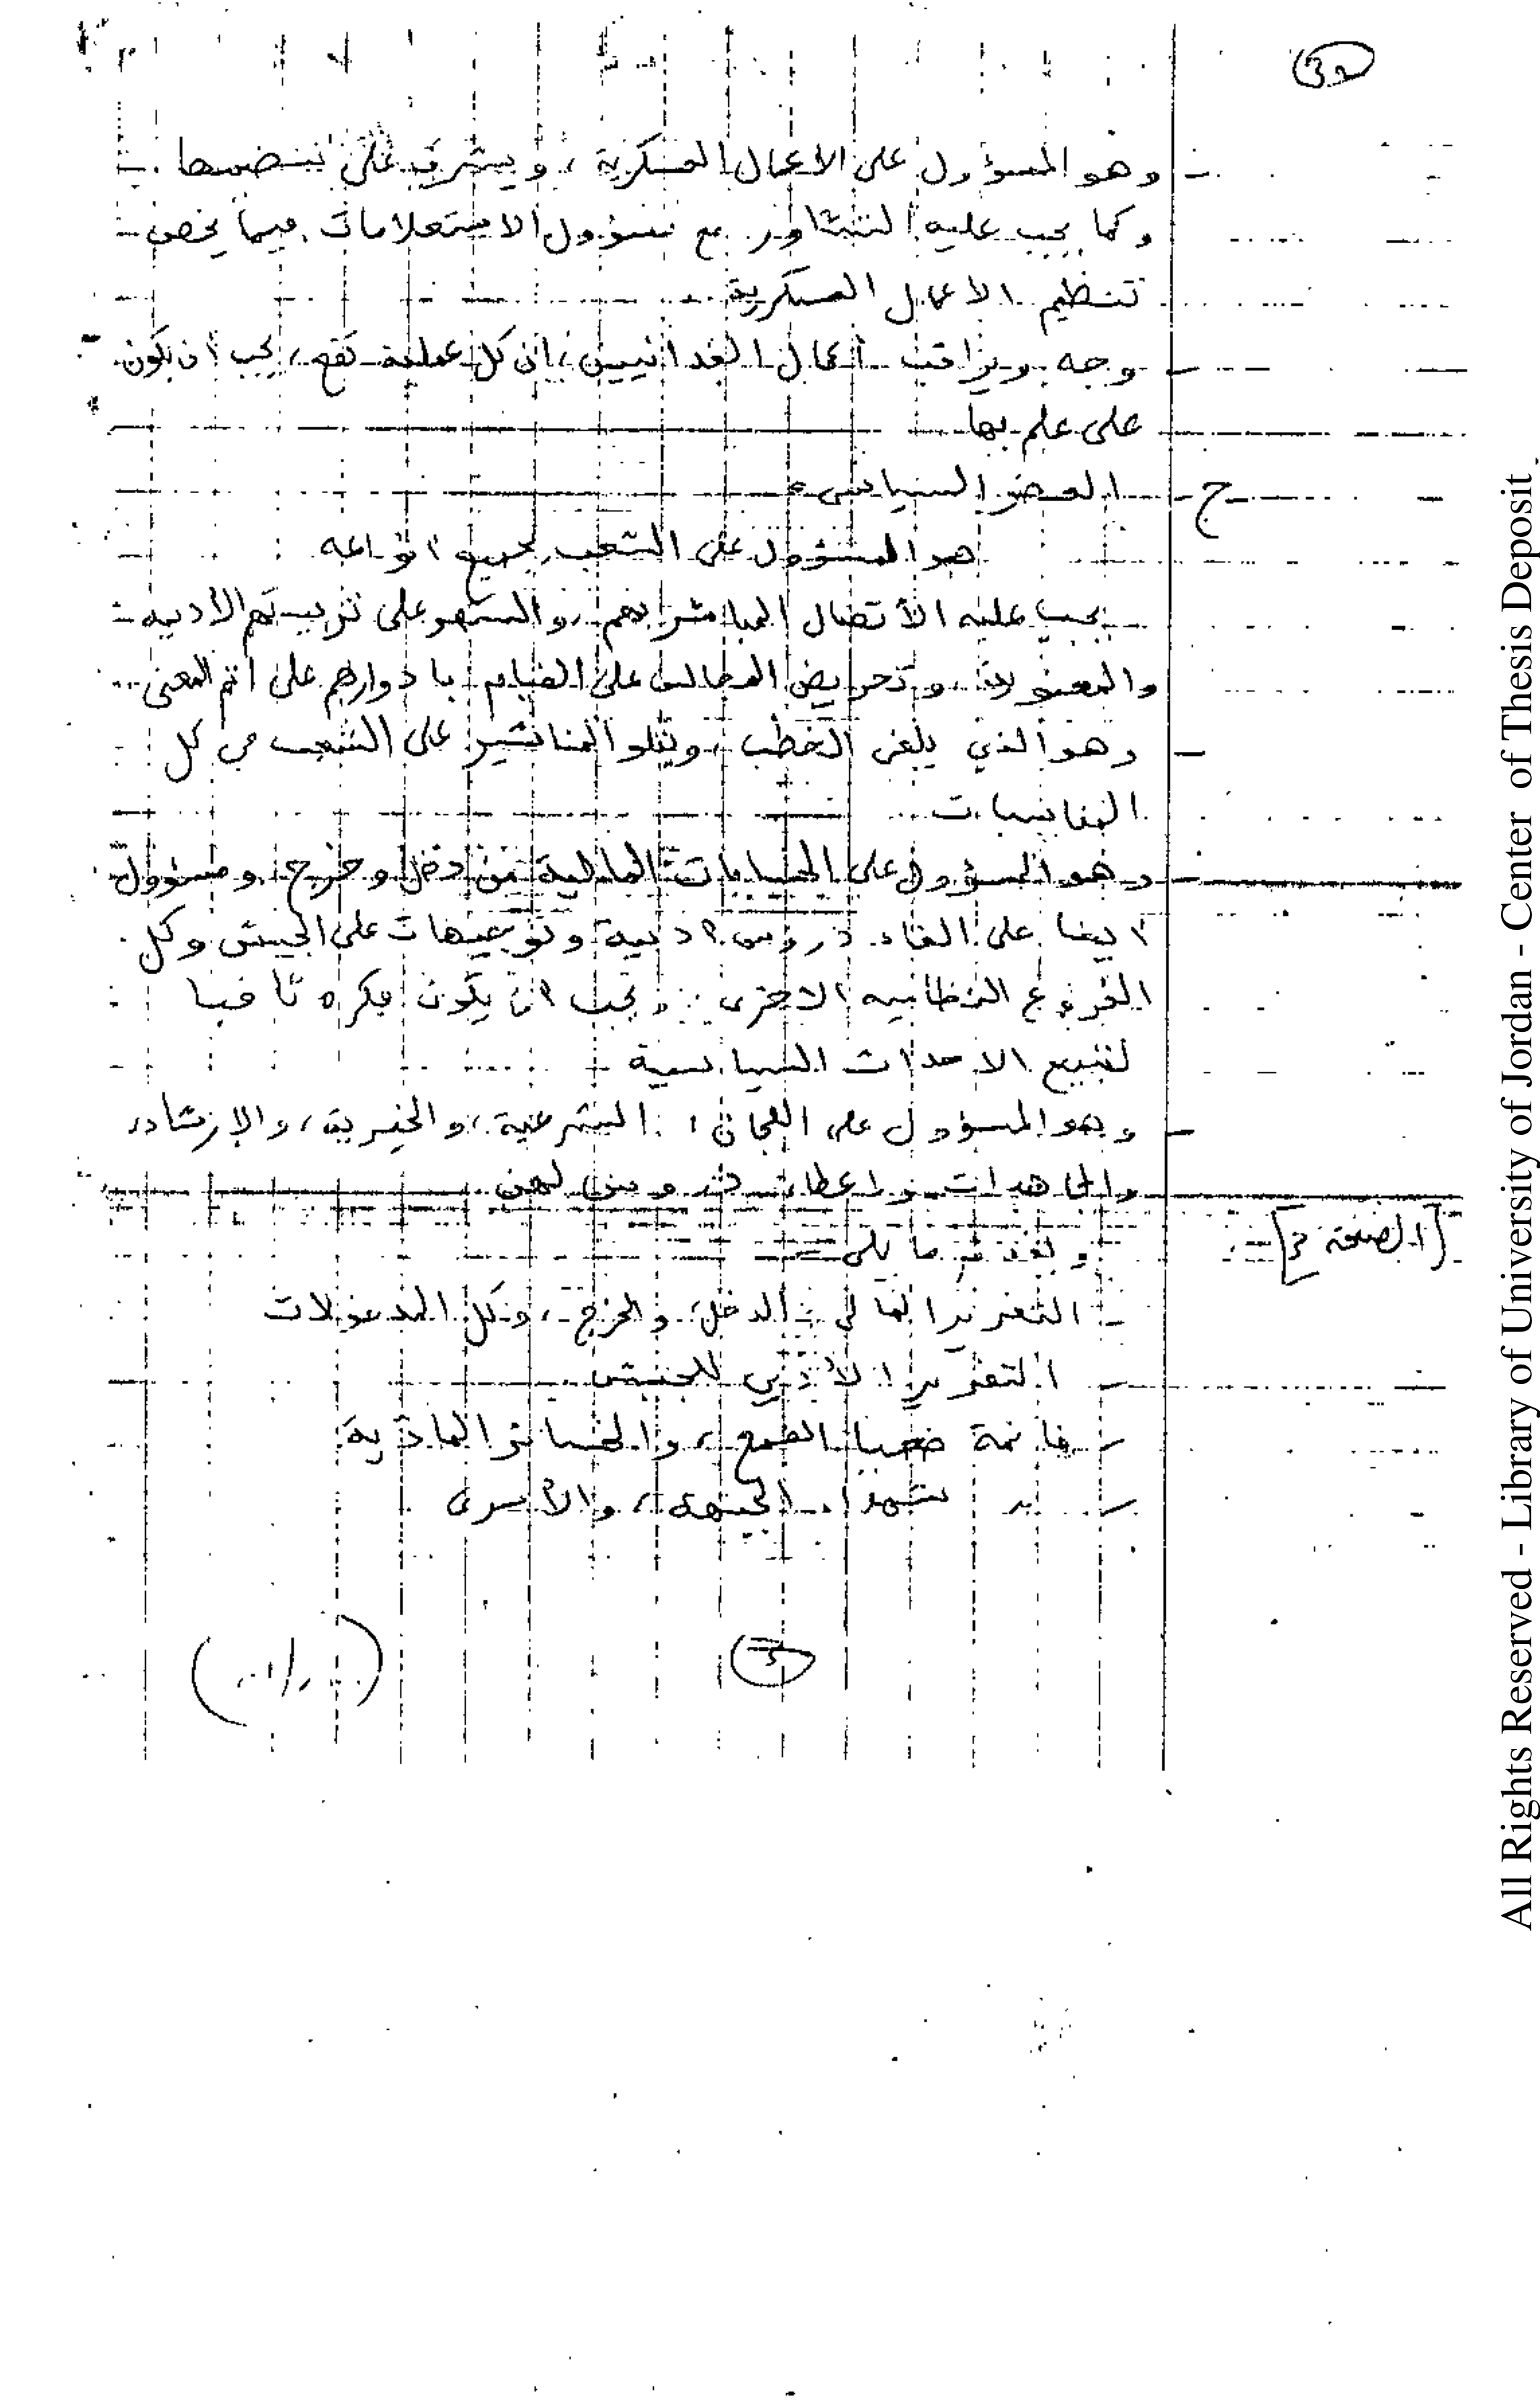 32
- وهو المسؤول على الاعمال العسكرية، ويشرف على تنضيمها
وكما يجب عليه التشاور مع مسؤول الاستعلامات فيما يخص
تنظيم الاعمال العسكرية
- وجه ويراقب أعمال الفدائيين، ان كل عملية تقع، يجب ان يكون
على علم بها
ج - العضو السياسي:
هو المسؤول على الشعب بجميع انواعه
يجب عليه الأتصال المباشر بهم، والسهر على تربيتهم الأدبيه
والمعنوية، وتحريض المجالس على القيام بادوارهم على اتم المعنى
- وهو الذي يلقى الخطب، ويتلو المناشير على الشعب في كل
المناسبات
- وهو المسؤول على الحسابات المالية من دخل وخرج ومسؤول
ايضا على القاء دروس ادبية وتوجيهات على الجيش وكل
الفروع النظاميه الاخرى، ويجب ان يكون فكره ثاقبا
لتتبع الاحداث السياسية
- وهو المسؤول على اللجان: الشرعية، والخيرية، والإرشاد،
والمجاهدات واعطاء دروس لهن
[الصفحة 3] - ويقدم ما يلي
- التقرير المالي: الدخل، والخرج، وكل المدخولات
- التقرير الأدبي للجيش
- قائمة ضحايا القمع، والخسائر المادية
- شهداء الجبهة، والأسرى
All Rights Reserved - Library of University of Jordan - Center of Thesis Deposit